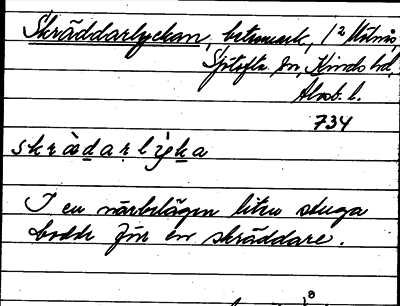 Skräddarlyckan, betesmark, 1/2 Mölnås,
Sn, Kinds hd,
Älvsb. l.
734
skrädarlyka
I en närbelägen liten stuga
bodde förr en skräddare.